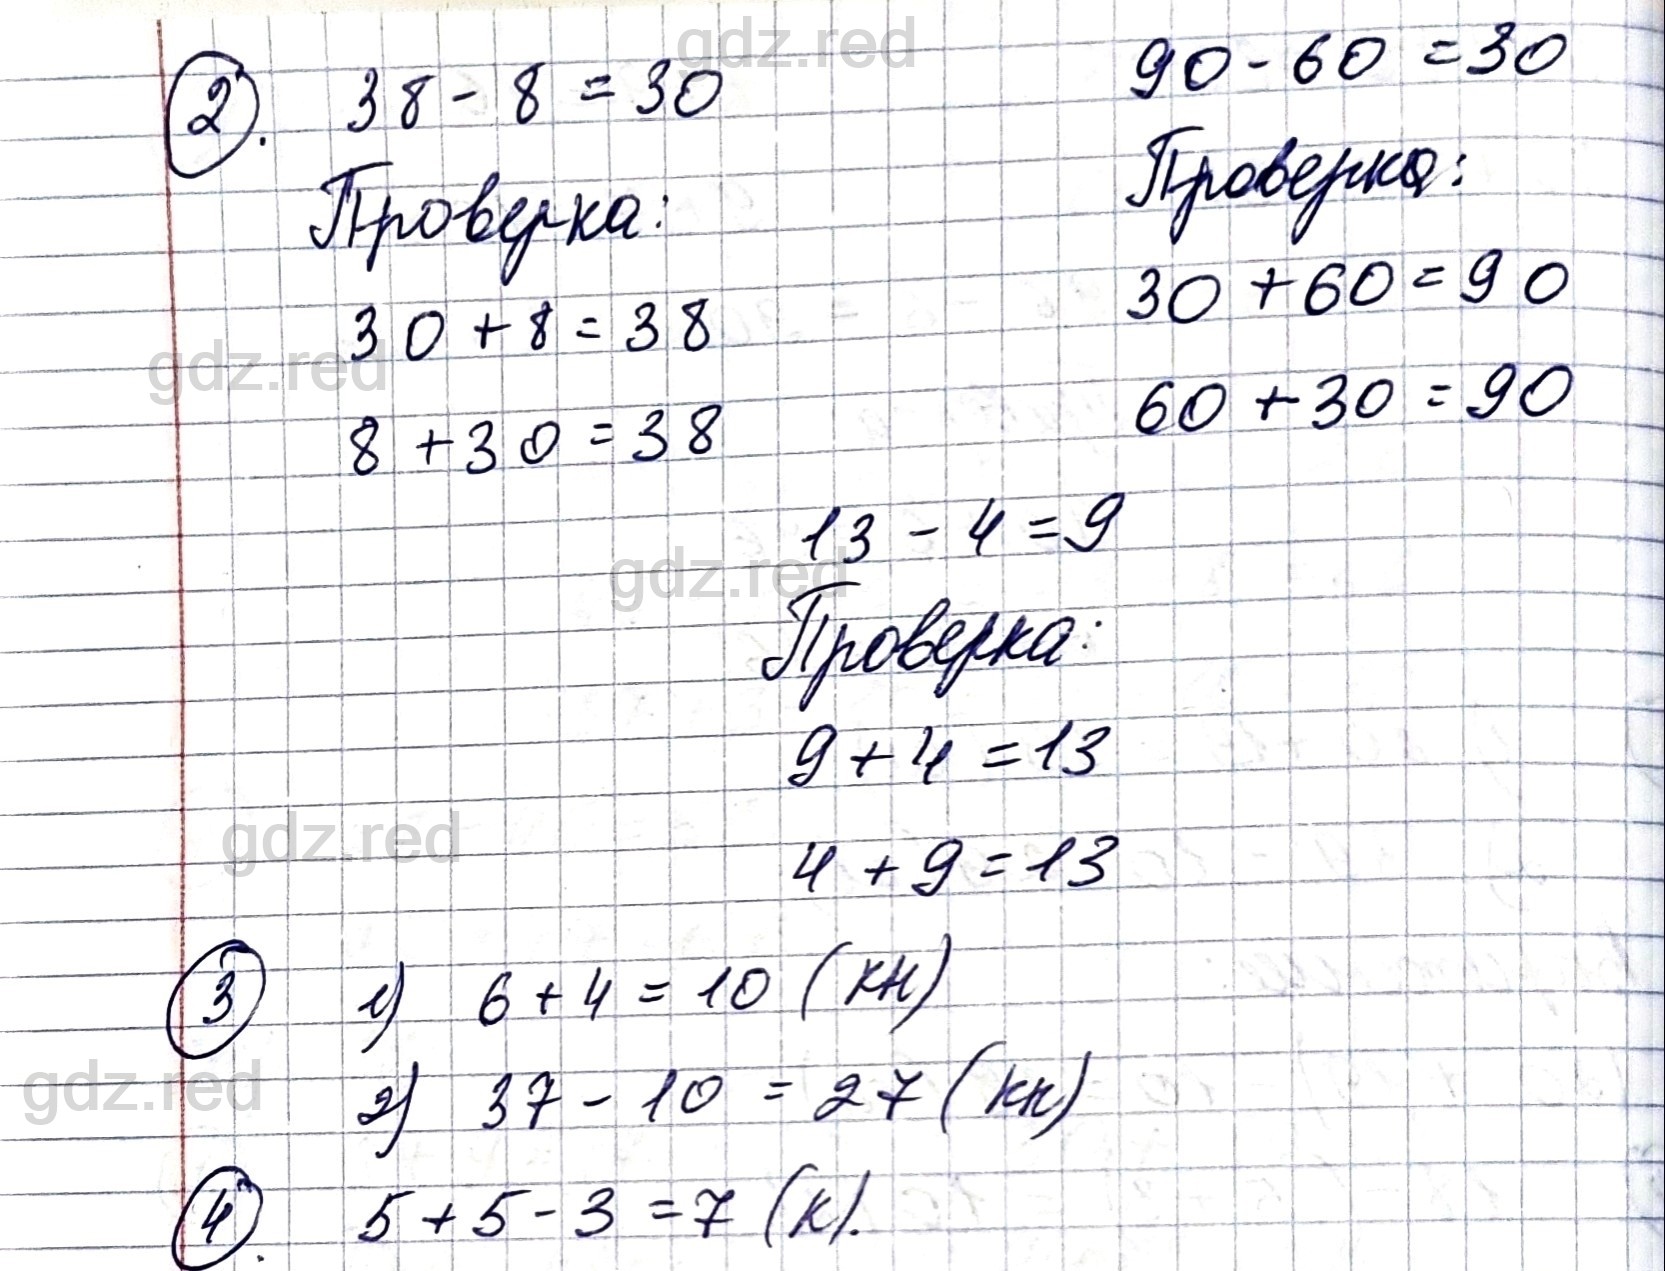 gdz.red
2. 38 - 8 = 30
Проверка:
30 + 8 = 38
gdz.red
8 + 30 = 38
90 - 60 = 30
Проверка:
30 + 60 = 90
60 + 30 = 90
13 - 4 = 9
gdz.red
Проверка:
9 + 4 = 13
4 + 9 = 13
gdz.red
3 1) 6 + 4 = 10 (кн)
gdz.red
2) 37 - 10 = 27 (кн)
4. 5 + 5 - 3 = 7 (к).